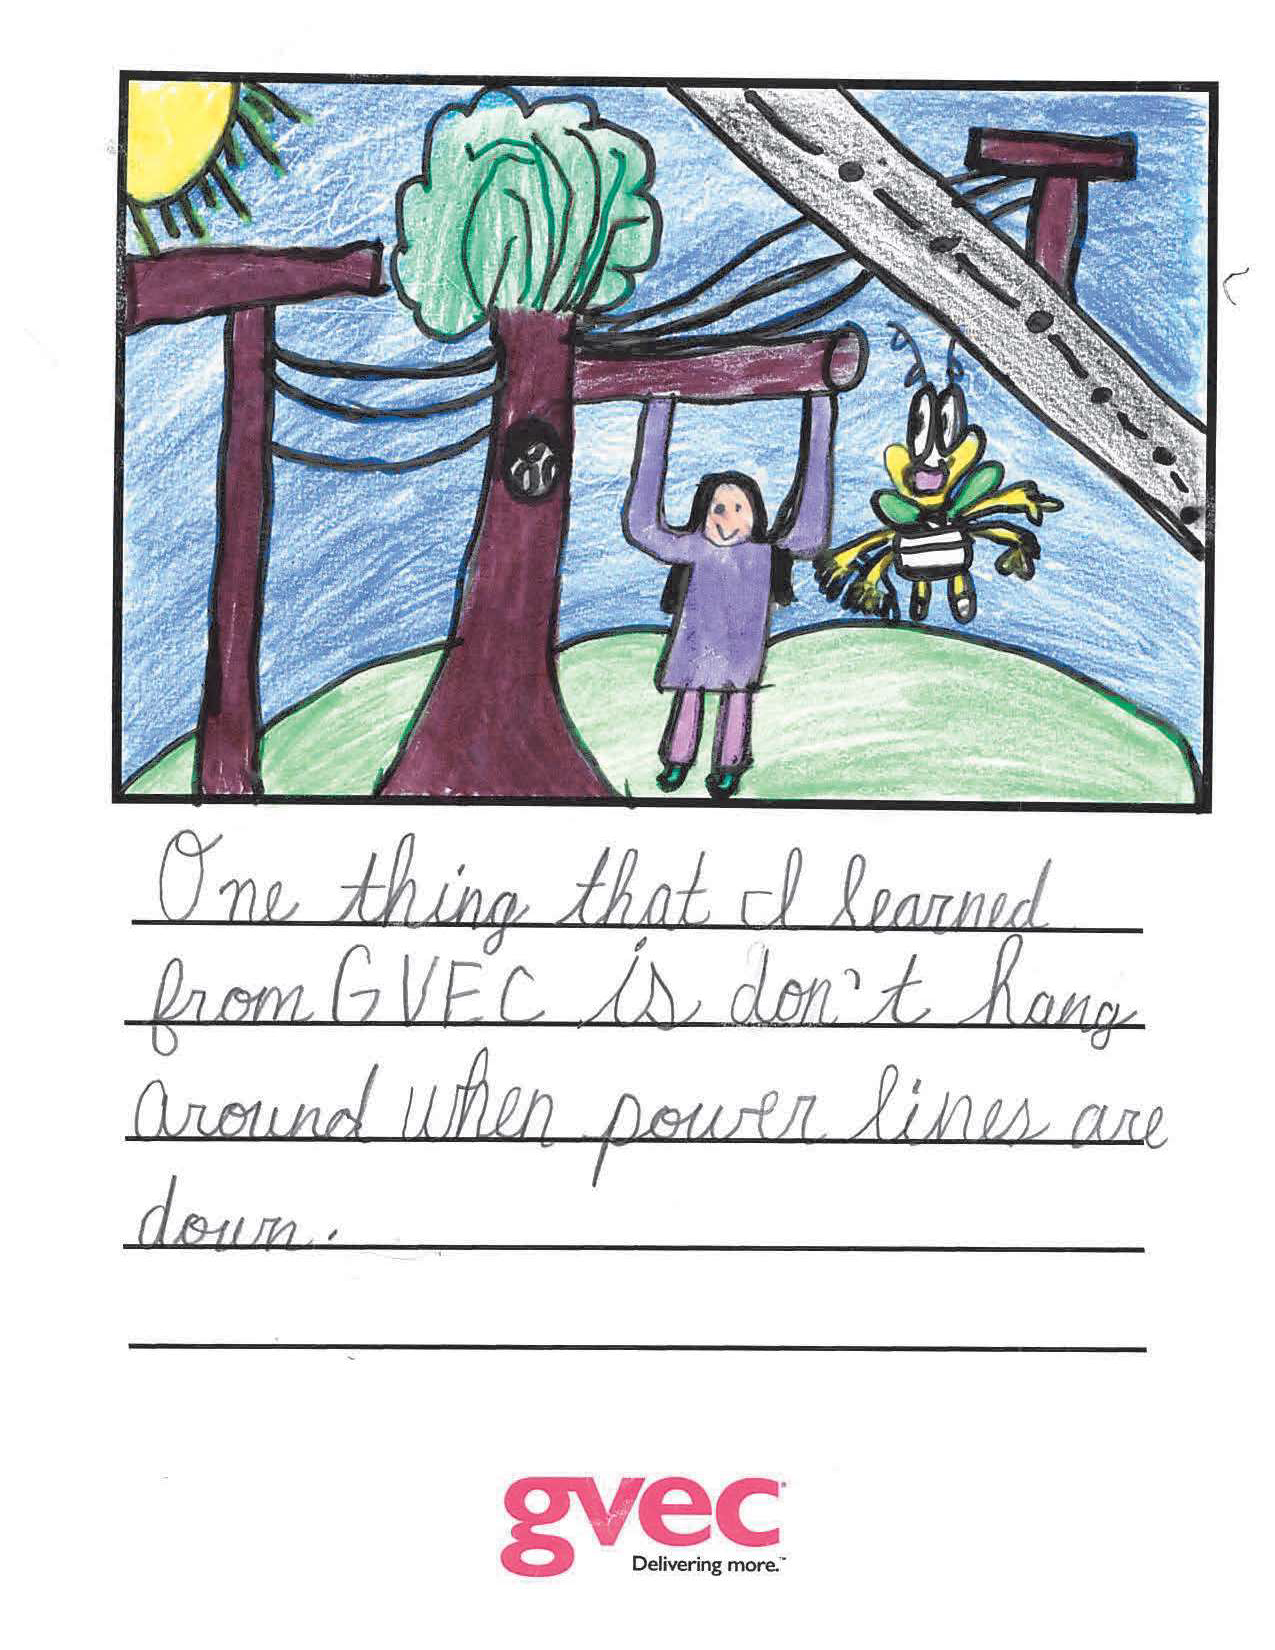 One thing that I learned
from GVEC is don't hang
around when power lines are
down.
gvec
Delivering more.™